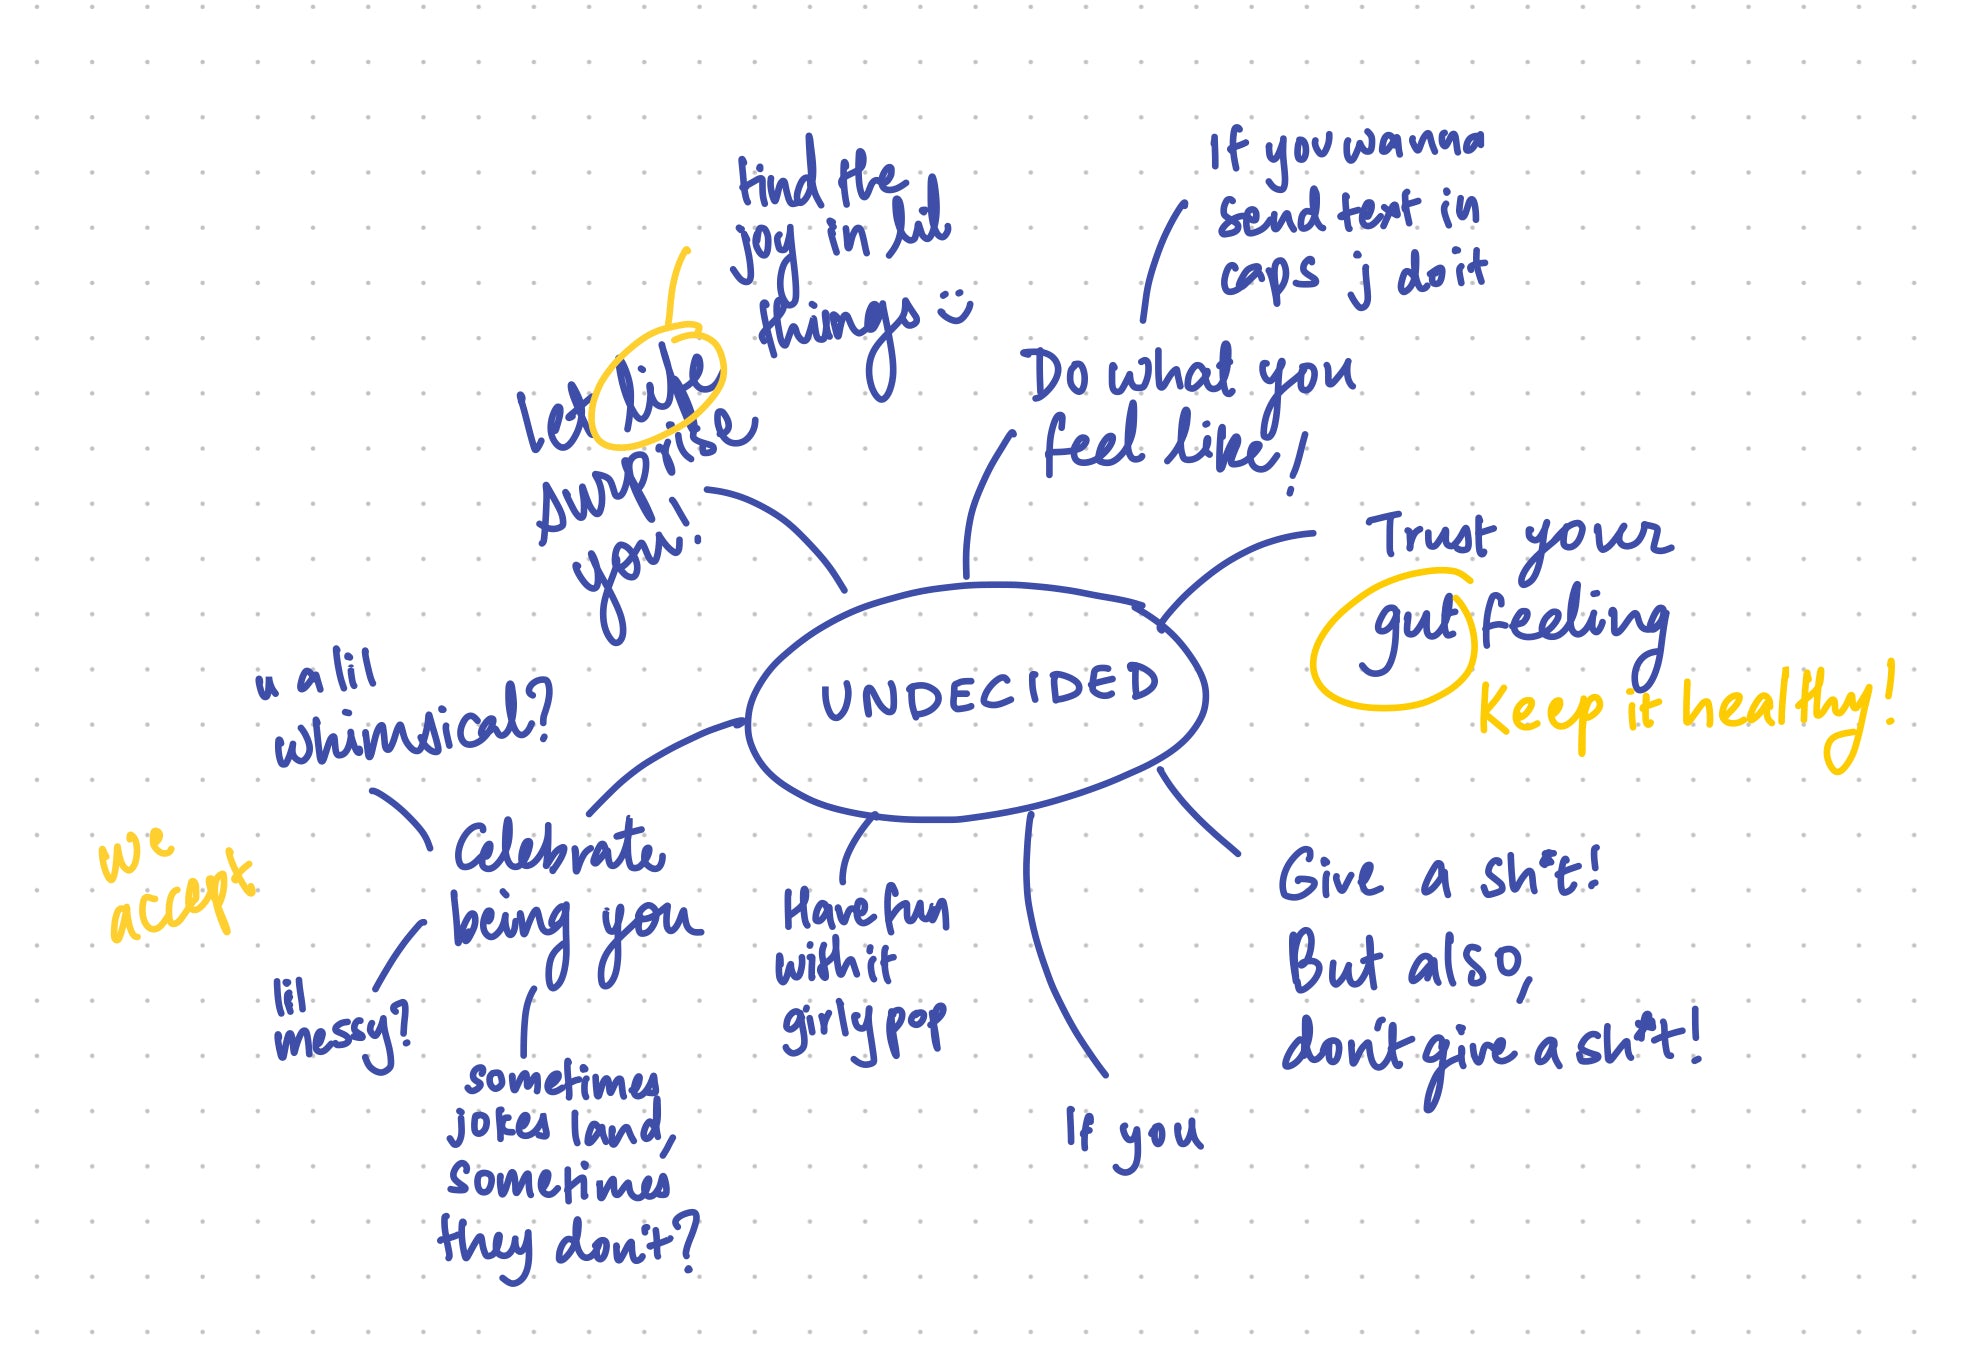 find the
joy in lil
things :)
If you wanna
send text in
caps j do it
Let life
surprise
you!
Do what you
feel like!
Trust your
gut feeling
Keep it healthy!
UNDECIDED
u a lil
whimsical?
we
accept
Celebrate
being you
lil
messy?
sometimes
jokes land,
sometimes
they don't?
Have fun
with it
girly pop
If you
Give a sh*t!
But also,
don't give a sh*t!